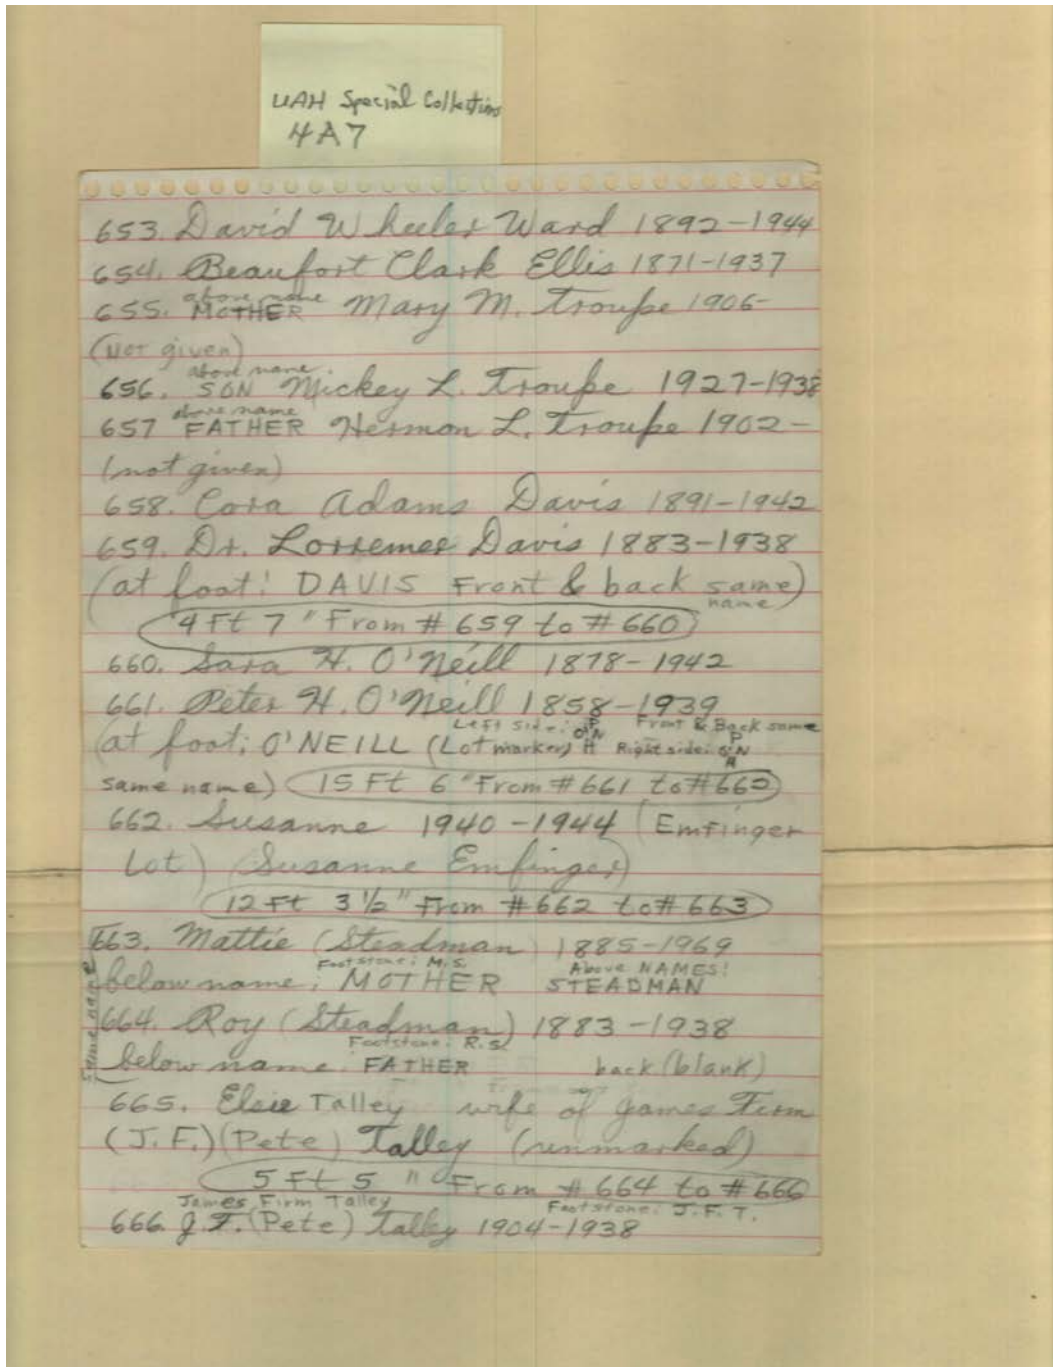 UAH Special Collections
4A7
653. David Wheeler Ward 1892-1944
654. Beaufort Clark Ellis 1871-1937
above name
655. MOTHER Mary M. Troupe 1906-
(not given)
above name.
656. SON Mickey L. Troupe 1927-1938
above name
657 FATHER Hermon L. Troupe 1902-
(not given)
658. Cora Adams Davis 1891-1942
659. Dr. Lorremer Davis 1883-1938
(at foot: DAVIS Front & back same)
name
4 Ft 7" From # 659 to # 660
660. Sara H. O'Neill 1878-1942
661. Peter H. O'Neill 1858-1939
Left side: P Front & Back same
O'N P
(at foot: O'NEILL (Lot marker) H Right side: O'N
H
same name) 15 Ft 6" From # 661 to # 662
662. Susanne 1940-1944 (Emfinger
Lot) (Susanne Emfinger)
12 Ft 3 1/2" From # 662 to # 663
663. Mattie (Steadman) 1885-1969
Footstone: M.S. Above NAMES:
below name: MOTHER STEADMAN
same
664. Roy (Steadman) 1883-1938
Footstone: R.S.
below name: FATHER back (blank)
665. Elsie Talley wife of James Firm
(J.F.) (Pete) Talley (unmarked)
5 Ft 5" From # 664 to # 666
James Firm Talley Footstone: J.F.T.
666. J.F. (Pete) Talley 1904-1938